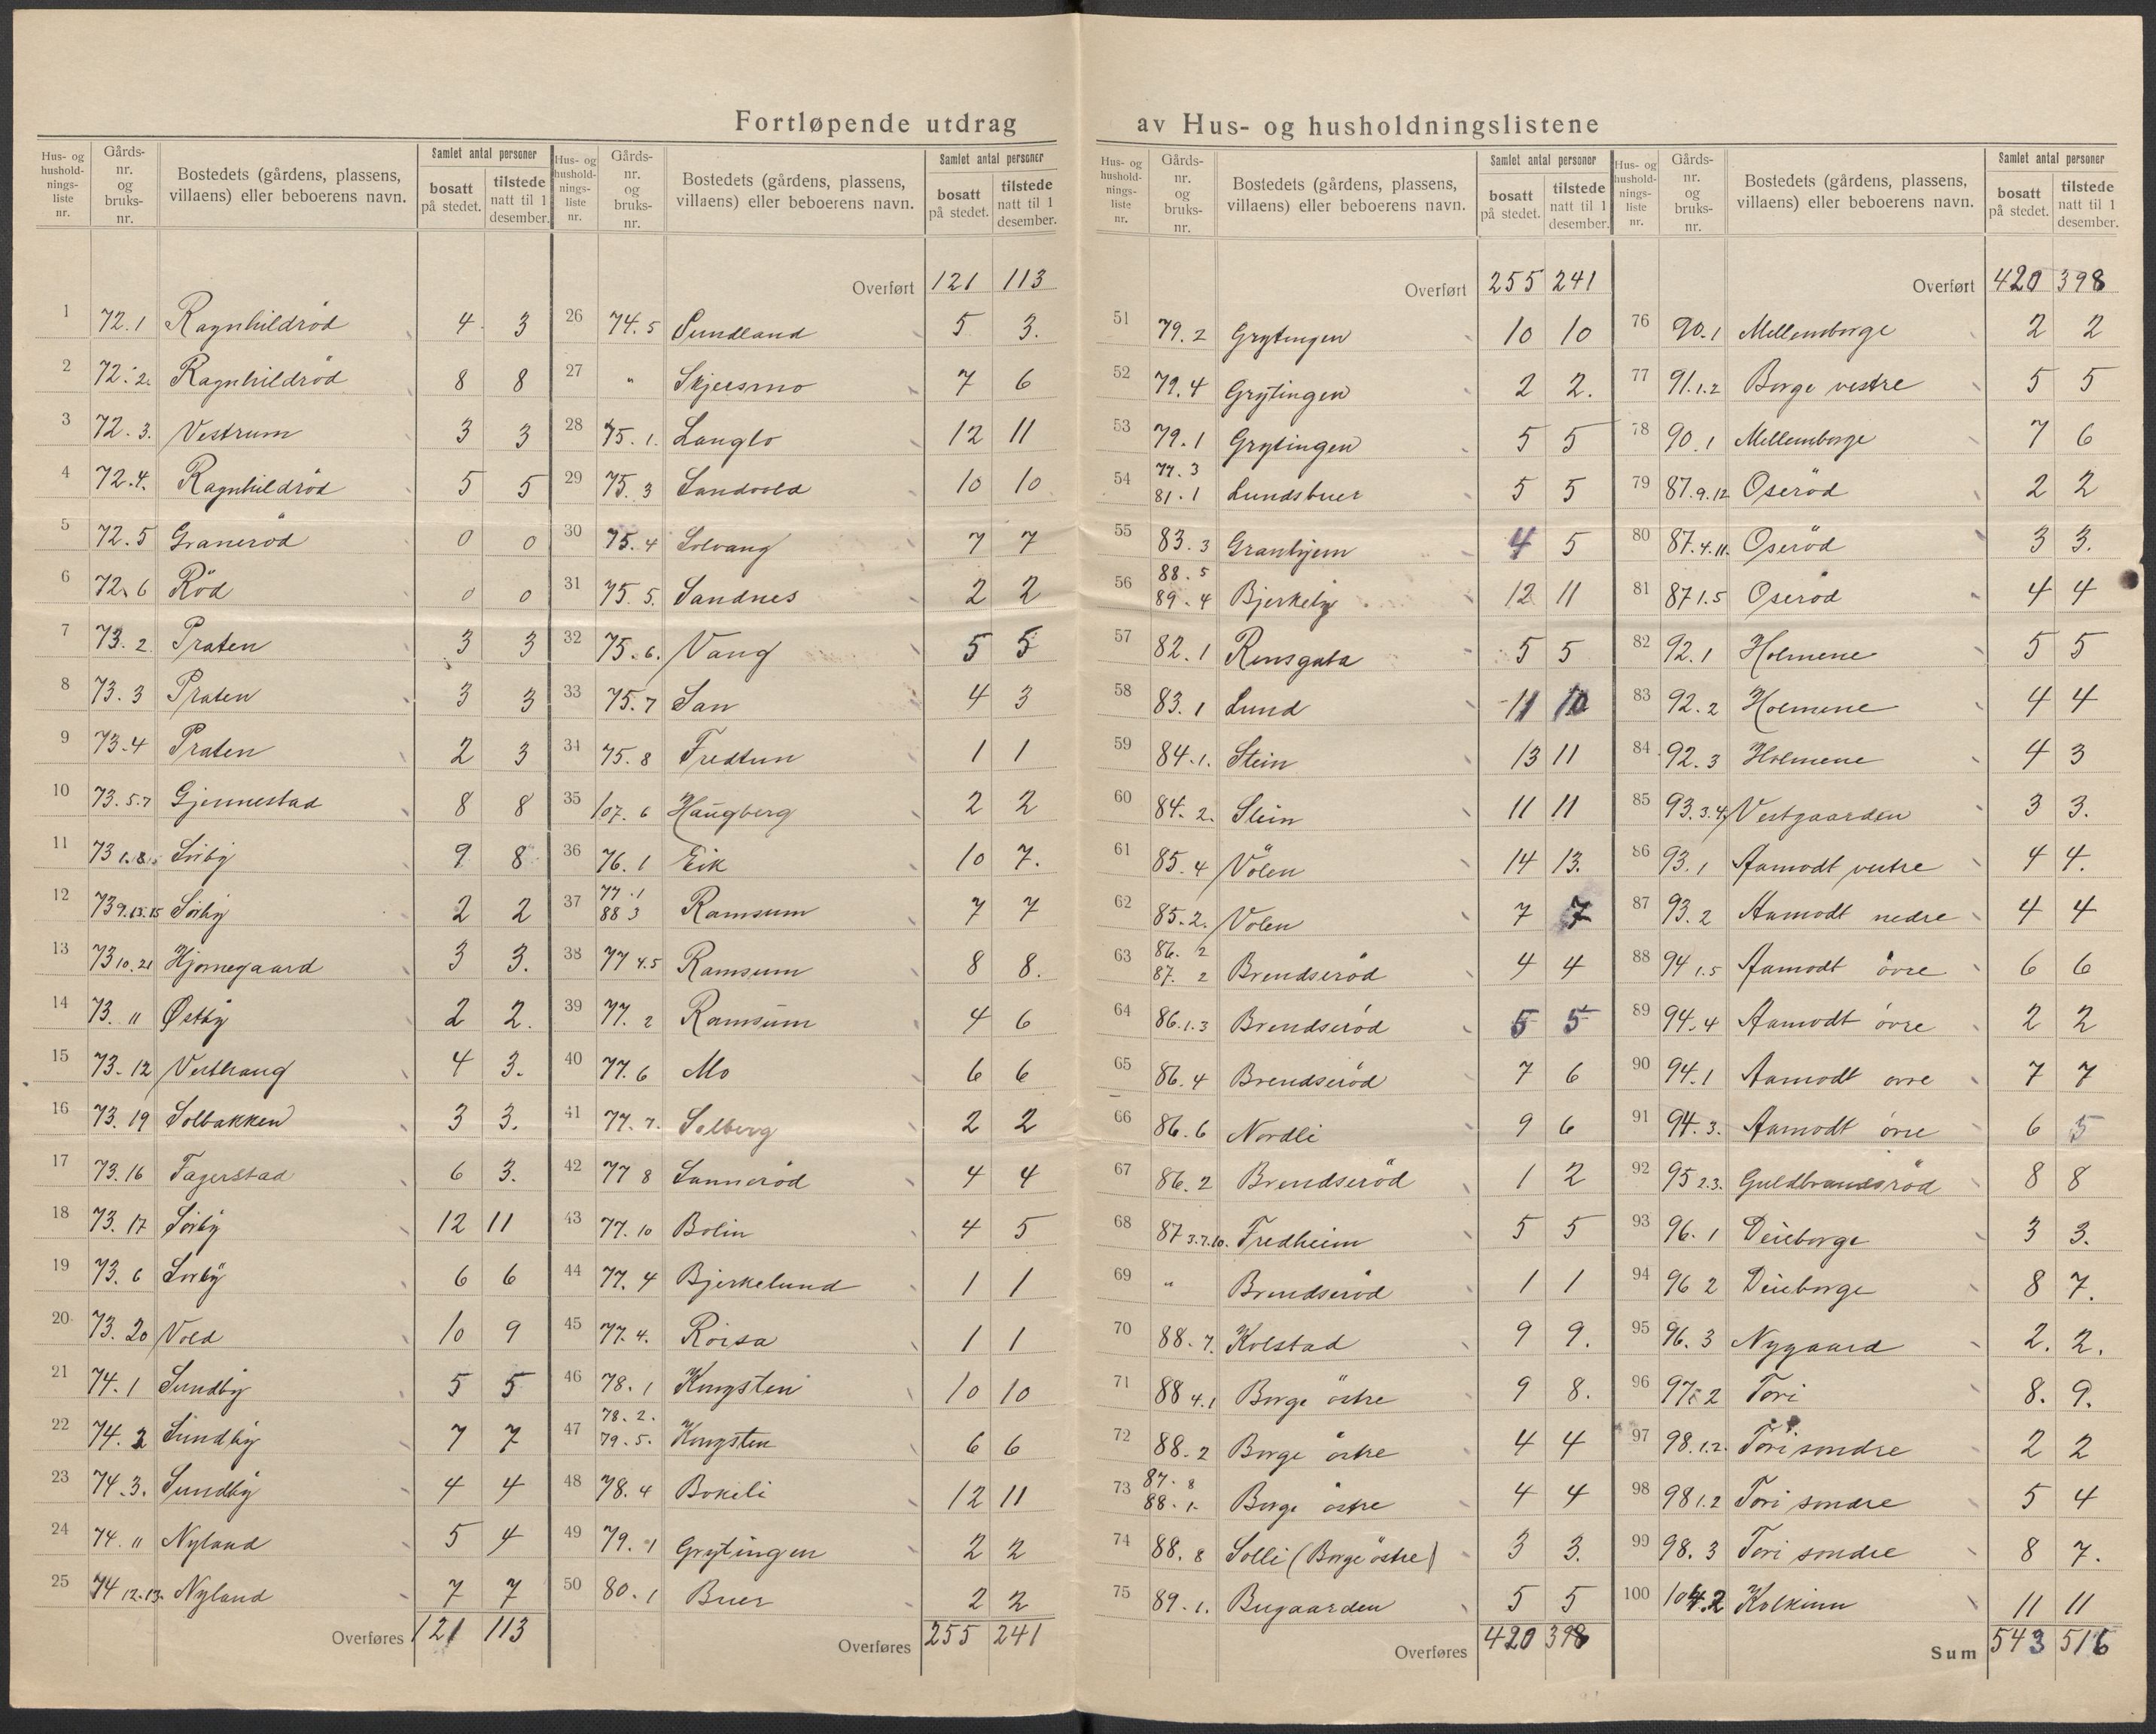 Fortløpende utdrag av Hus- og husholdningslistene
Hus- og husholdningsliste nr. Gårdsnr. og bruksnr. Bostedets (gårdens, plassens, villaens) eller beboerens navn. Samlet antal personer bosatt på stedet. tilstede natt til 1 desember.
1 72.1 Ragnhildröd 4 3
2 72.2. Ragnhildröd 8 8
3 72.3. Vestrum 3 3
4 72.4. Ragnhildröd 5 5
5 72.5 Graneröd 0 0
6 72.6 Röd 0 0
7 73.2 Praten 3 3
8 73.3 Praten 3 3
9 73.4 Praten 2 3
10 73.5.7 Gjennestad 8 8
11 73 1.8. Sörby 9 8
12 73 9.13.15 Sörby 2 2
13 73 10.21 Hjornegaard 3 3.
14 73.11 Østby 2 2.
15 73.12 Vesthaug 4 3.
16 73.19 Solbakken 3 3.
17 73.16 Fagerstad 6 3.
18 73.17 Sörby 12 11
19 73.6 Sörby 6 6
20 73.20 Vold 10 9
21 74.1 Sundby 5 5
22 74.2 Sundby 7 7
23 74.3. Sundby 4 4
24 74.11 Nyland 5 4
25 74 12.13. Nyland 7 7
Overføres 121 113
Hus- og husholdningsliste nr. Gårdsnr. og bruksnr. Bostedets (gårdens, plassens, villaens) eller beboerens navn. Samlet antal personer bosatt på stedet. tilstede natt til 1 desember.
Overført 121 113
26 74.5 Sundland 5 3.
27 " Skjersmo 7 6
28 75.1. Langlo 12 11
29 75.3 Sandvold 10 10
30 75.4 Solvang 7 7
31 75.5. Sandnes 2 2
32 75.6. Vang 5 5
33 75.7 San 4 3
34 75.8 Fredtun 1 1
35 107.6 Haugberg 2 2
36 76.1 Eik 10 7.
37 77.1 88 3 Ramsum 7 7
38 77 4.5 Ramsum 8 8.
39 77.2 Ramsum 4 6
40 77.6 Mo 6 6
41 77.7. Solberg 2 2
42 77 8 Sanneröd 4 4
43 77.10 Bolin 4 5
44 77.4 Bjerkelund 1 1
45 77.4. Roisa 1 1
46 78.1 Kongsten 10 10
47 78.2. 79.5. Kongsten 6 6
48 78.4 Bokeli 12 11
49 79.1 Grytingen 2 2
50 80.1 Buer 2 2
Overføres 255 241
Hus- og husholdningsliste nr. Gårdsnr. og bruksnr. Bostedets (gårdens, plassens, villaens) eller beboerens navn. Samlet antal personer bosatt på stedet. tilstede natt til 1 desember.
Overført 255 241
51 79.2 Grytingen 10 10
52 79.4 Grytingen 2 2.
53 79.1 Grytingen 5 5
54 77.3 81.1 Lundsbuer 5 5
55 83.3 Granhjem 4 5
56 88.5 89.4 Bjerkely 12 11
57 82.1 Rinsgata 5 5
58 83.1 Lund 11 10
59 84.1. Stein 13 11
60 84.2. Stein 11 11
61 85.4 Völen 14 13.
62 85.2. Völen 7 7
63 86.2 87.2 Brendseröd 4 4
64 86.1.3 Brendseröd 5 5
65 86.4 Brendseröd 7 6
66 86.6 Nordli 9 6
67 86.2 Brendseröd 1 2
68 87 3.7.10. Fredheim 5 5
69 " Brendseröd 1 1
70 88.7. Kolstad 9 9.
71 88 4.1 Borge östre 9 8.
72 88.2 Borge östre 4 4
73 87.8 88.1. Borge östre 4 4
74 88.8 Solli (Borge östre) 3 3.
75 89.1. Bugaarden 5 5
Overføres 420 398
Hus- og husholdningsliste nr. Gårdsnr. og bruksnr. Bostedets (gårdens, plassens, villaens) eller beboerens navn. Samlet antal personer bosatt på stedet. tilstede natt til 1 desember.
Overført 420 398
76 90.1 Mellemborge 2 2
77 91.1.2 Borge vestre 5 5
78 90.1 Mellemborge 7 6
79 87.9.12 Oseröd 2 2
80 87.4.11. Oseröd 3 3.
81 87 1.5 Oseröd 4 4
82 92.1 Holmene 5 5
83 92.2 Holmene 4 4
84 92.3 Holmene 4 3
85 93.3.4. Vestgaarden 3 3.
86 93.1 Aamodt vestre 4 4.
87 93.2 Aamodt nedre 4 4
88 94 1.5 Aamodt övre 6 6
89 94.4 Aamodt övre 2 2
90 94.1 Aamodt ovre 7 7
91 94.3. Aamodt övre 6 5
92 95 2.3. Guldbrandsröd 8 8
93 96.1 Deieborge 3 3.
94 96 2 Deieborge 8 7.
95 96.3 Nygaard 2. 2.
96 97.2 Tori 8. 9.
97 98.1.2. Tori sondre 2 2
98 98 1.2 Tori sondre 5 4
99 98.3 Tori sondre 8 7.
100 104.2 Kolkinn 11 11
Sum 543 516